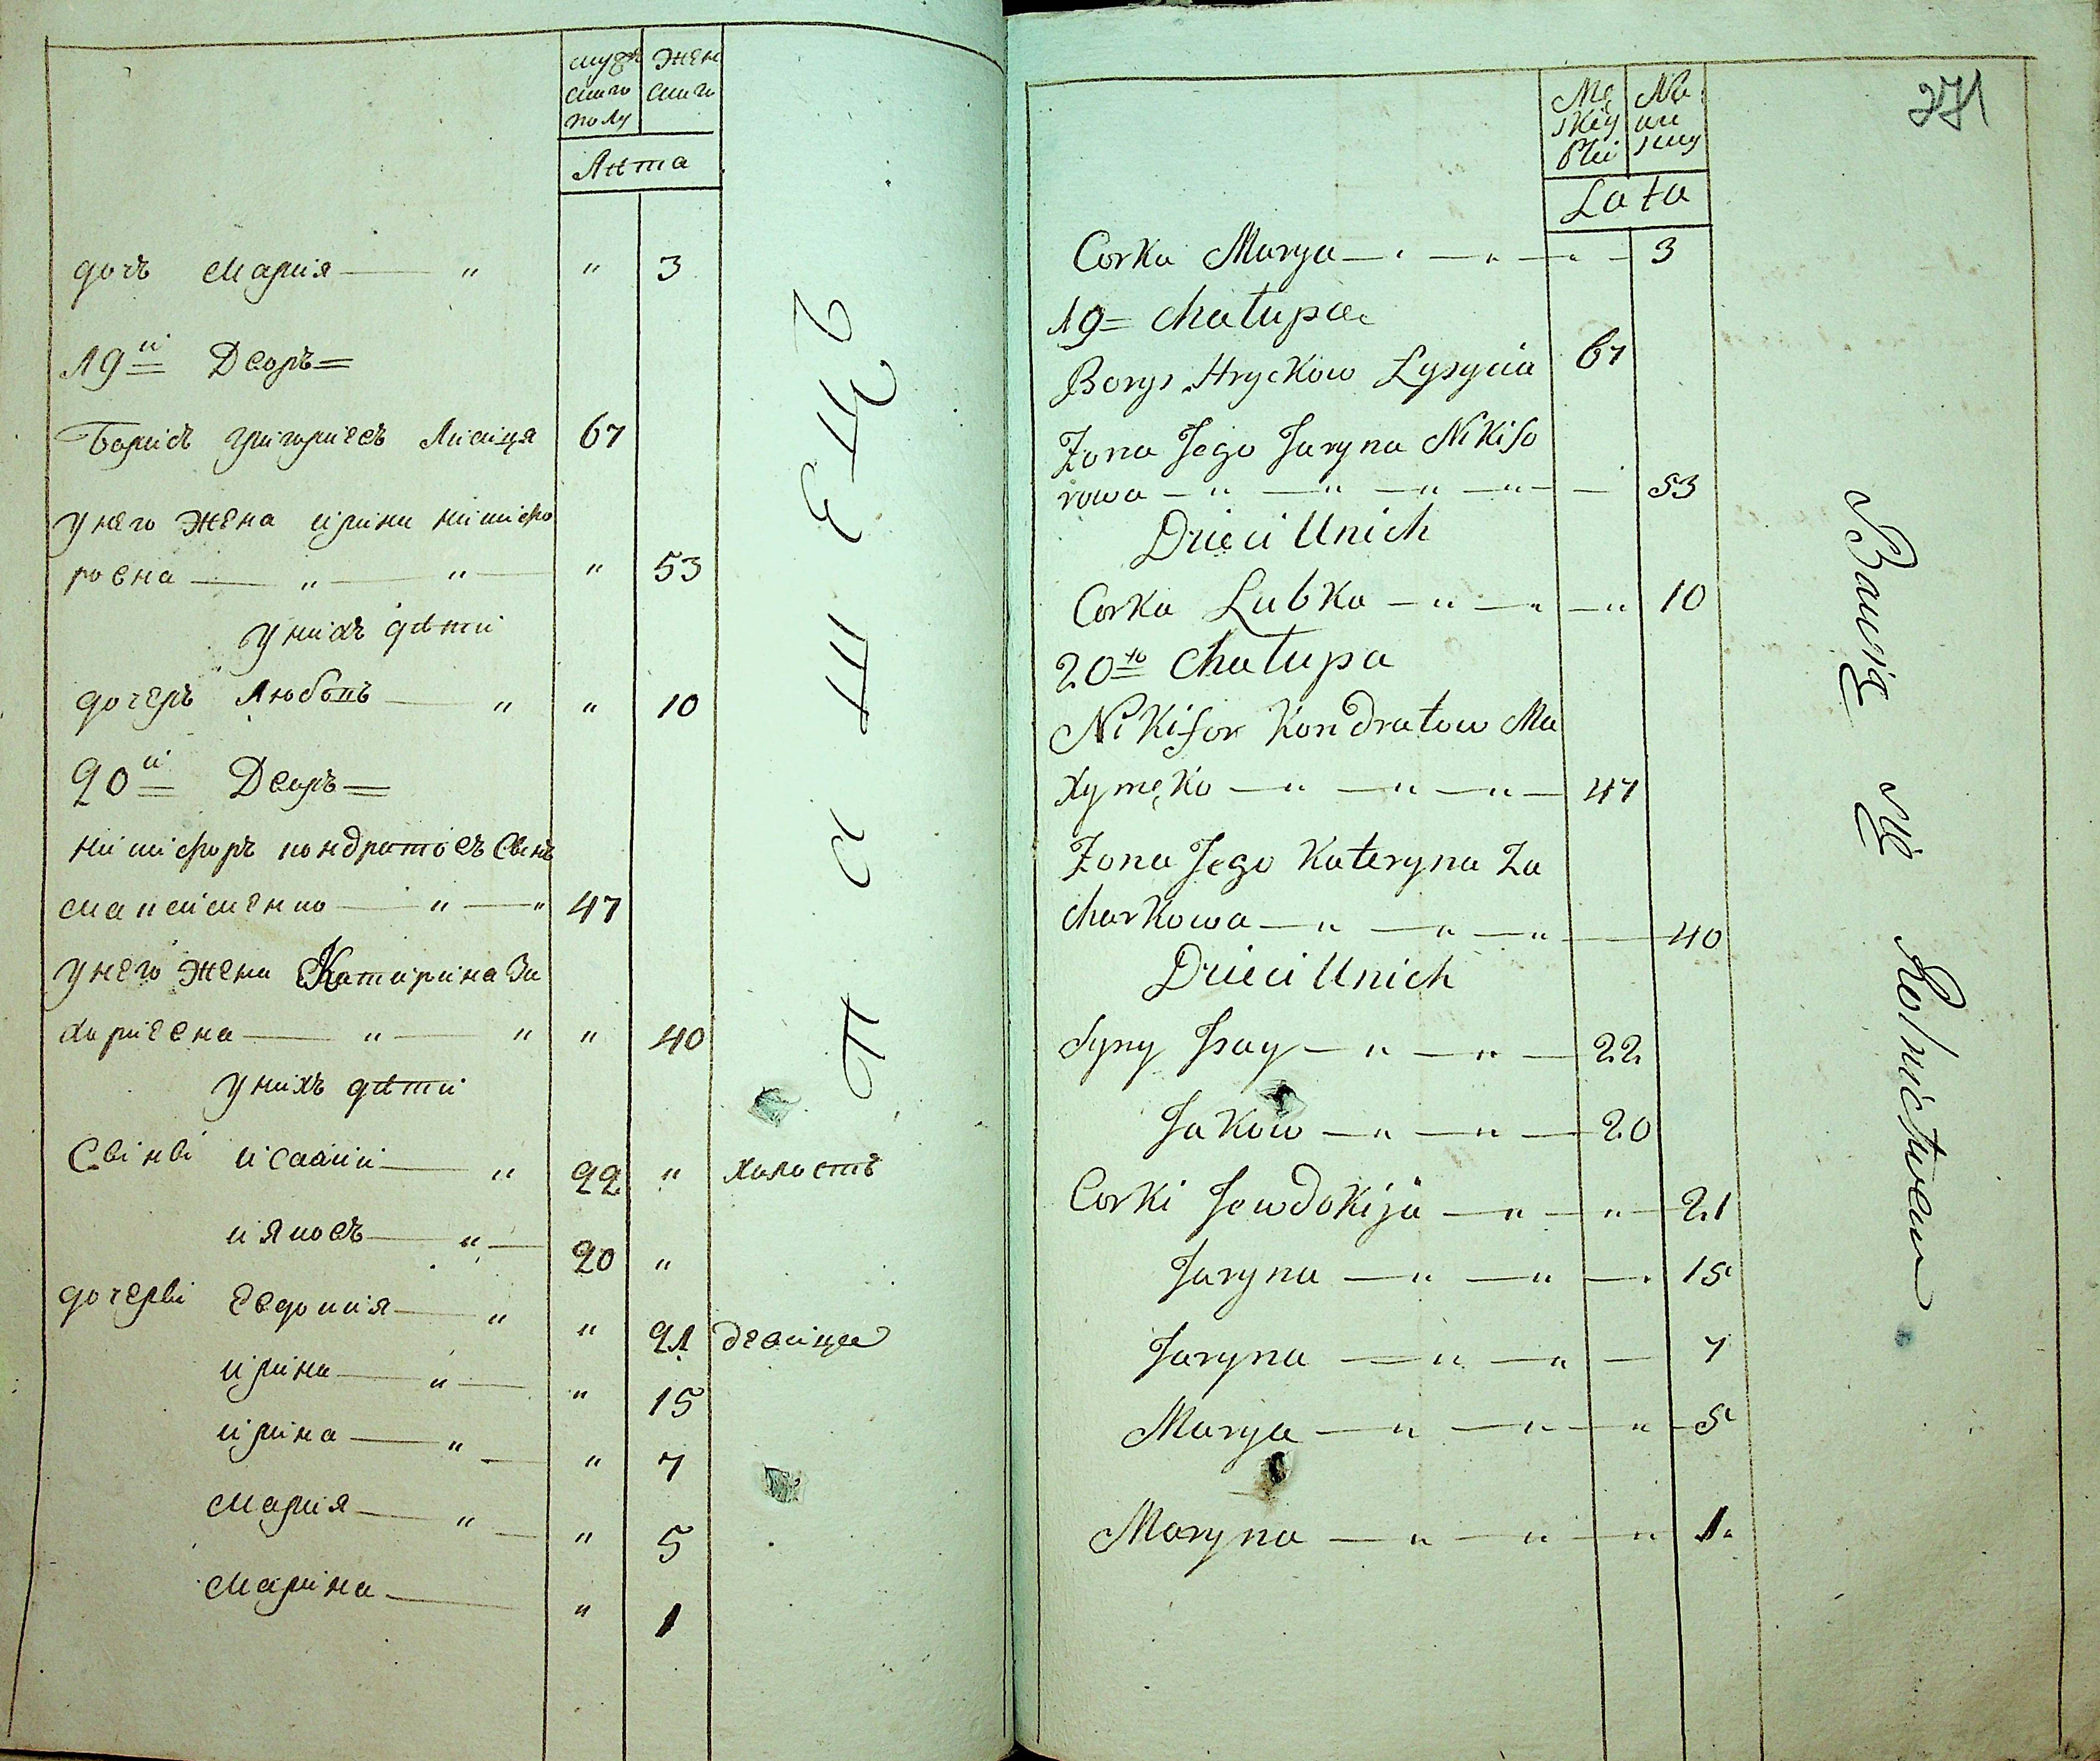 мужскаго полу
Женскаго
Лѣта
дочъ Мария 3
19й Дворъ
Борисъ Григориевъ Лисиця 67
у него Жена ирина никифо
ровна 53
у нихъ дѣти
дочеръ Любовъ 10
20й Дворъ
никифоръ кондратовъ
47
у него Жена Катирина За
хариевна 40
у нихъ дѣти
исаий 22 холостъ
ияковъ 20
Евдокия 21 девица
ирина 15
ирина 7
Мария 5
Марина 1
271
Lata
Corka Marya 3
19 Chałupa
Borys Hryckow Łysycia 67
Zona Jego Jaryna Nikifo
rowa 53
Dzieci Unich
Corka Lubka 10
20ta Chałupa
Nikifor Kondratow Ma
47
Zona Jego Kateryna Za
charkowa 40
Dzieci Unich
Syny Isay 22
Jakow 20
Corki Jewdokija 21
Jaryna 15
Jaryna 7
Marya 5
Maryna 1
Bawią się Rolnictwem